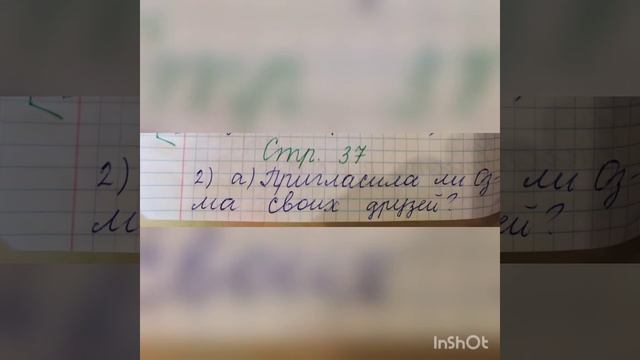 Стр. 37
2) а) Пригласила ли Оз-
ма своих друзей?
InShOt